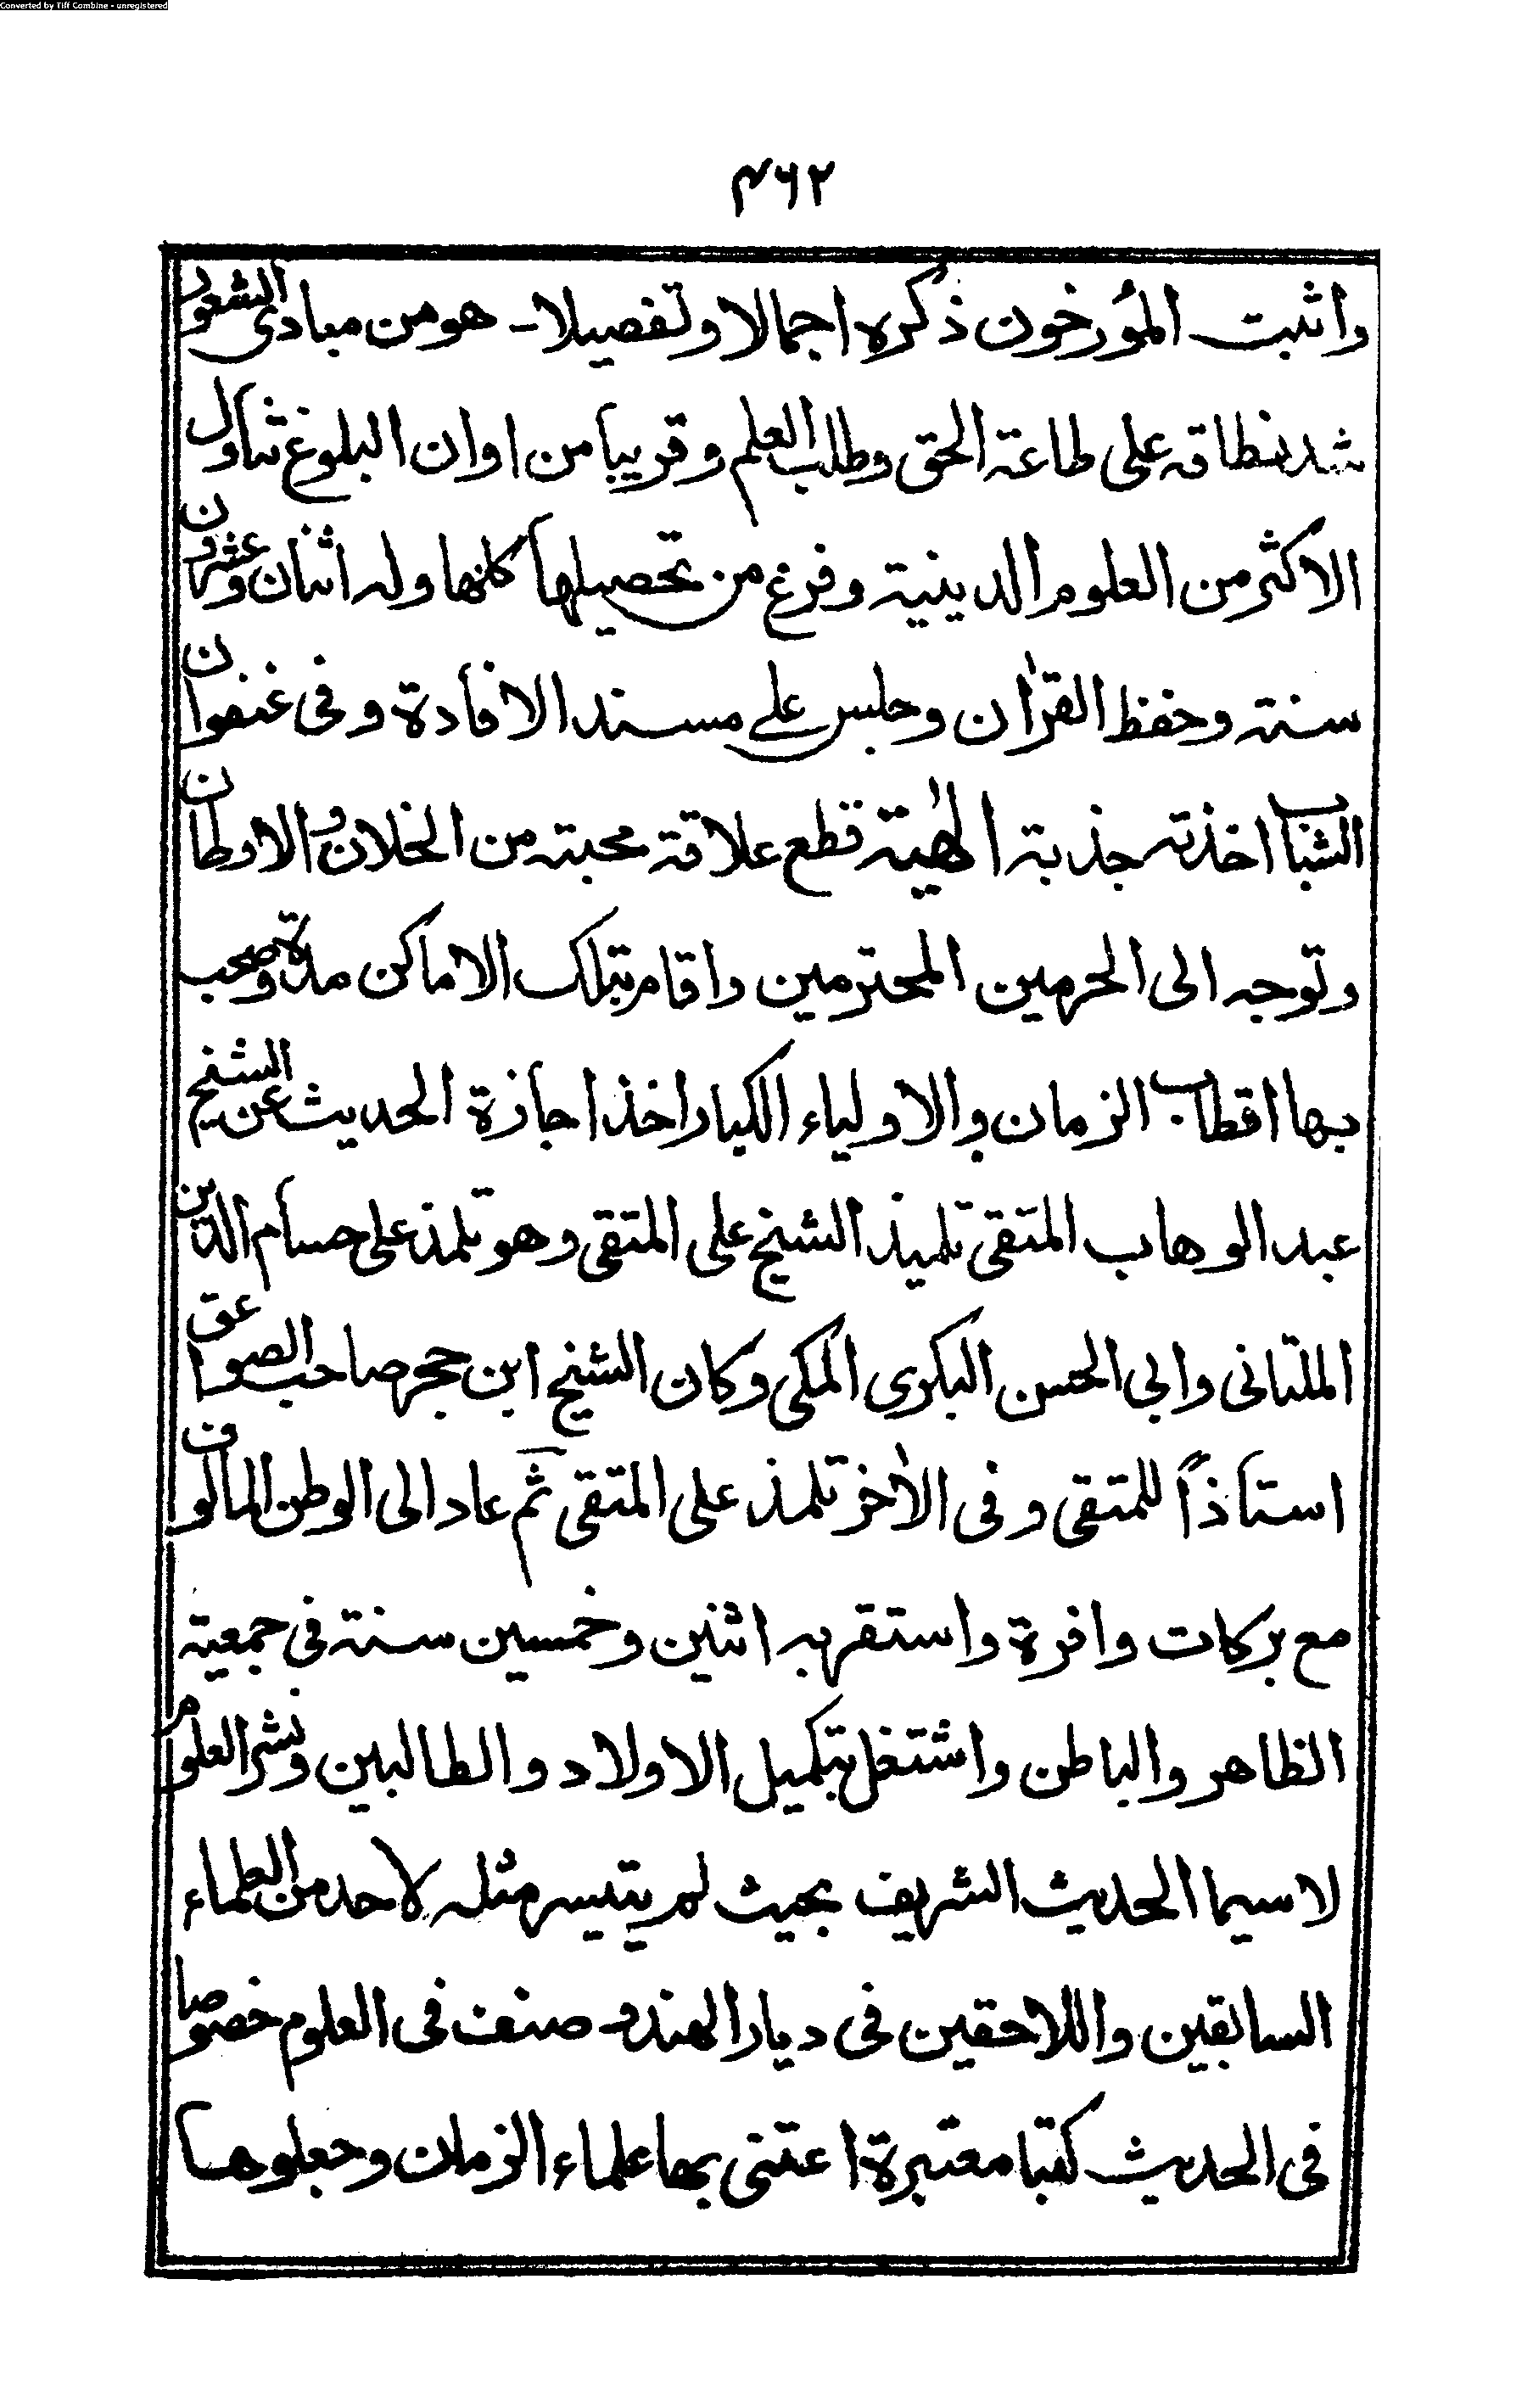 Converted by Tiff Combine - unregistered
۴۶۲
واثبت المؤرخون ذكره اجمالا وتفصيلا- هو من مبادى الشعور
شد نطاقه على طاعة الحق وطلب العلم وقريبا من اوان البلوغ تناول
الاكثر من العلوم الدينية وفرغ من تحصيلها كلها وله اثنان وعشرون
سنة وحفظ القرٰان وجلس على مسند الافادة وفى عنفوان
الشباب اخذته جذبة الٰهية قطع علاقة محبته من الخلان والاوطان
وتوجه الى الحرمين المحترمين واقام بتلك الاماكن مدة وصحب
بها اقطاب الزمان والاولياء الكبار اخذ اجازة الحديث عن الشيخ
عبد الوهاب المتقى تلميذ الشيخ على المتقى وهو تلمذ على حسام الدين
الملتانى وابى الحسن البكرى المكى وكان الشيخ ابن حجر صاحب الصواعق
استاذاً للمتقى وفى الاٰخر تلمذ على المتقى ثم عاد الى الوطن المالوف
مع بركات وافرة واستقر به اثنين وخمسين سنة فى جمعية
الظاهر والباطن واشتغل بتكميل الاولاد والطالبين ونشر العلوم
لا سيما الحديث الشريف بحيث لم يتيسر مثله لاحد من العلماء
السابقين واللاحقين فى ديار الهند وصنف فى العلوم خصوصا
فى الحديث كتبا معتبرة اعتنى بها علماء الزمان وجعلوها